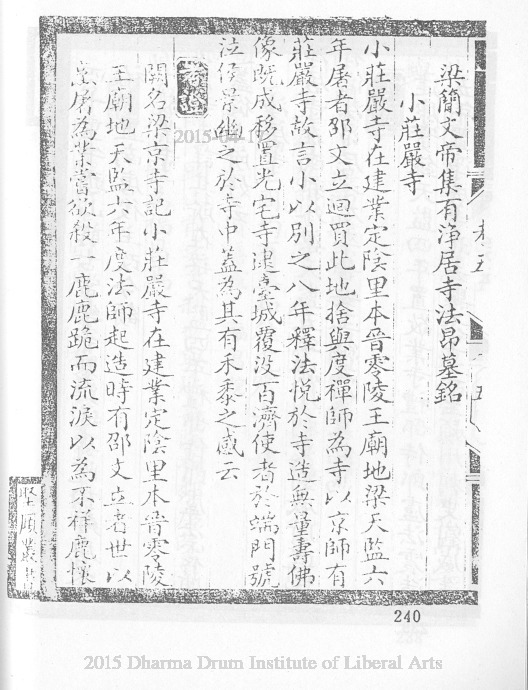 梁簡文帝集有淨居寺法昂墓銘
小莊嚴寺
小莊嚴寺在建業定陰里本晉零陵王廟地梁天監六
年屠者邵文立迴買此地捨與度禪師為寺以京師有
莊嚴寺故言小以別之八年釋法悅於寺造無量壽佛
像既成移置光宅寺逮臺城覆没百濟使者於端門號
泣侯景幽之於寺中蓋為其有禾黍之感云
考證
闕名梁京寺記小莊嚴寺在建業定陰里本晉零陵
王廟地天監六年度法師起造時有邵文立者世以
屠為業嘗欲殺一鹿鹿跪而流淚以為不祥鹿懷
卷五
堅順叢書
240
2015 Dharma Drum Institute of Liberal Arts